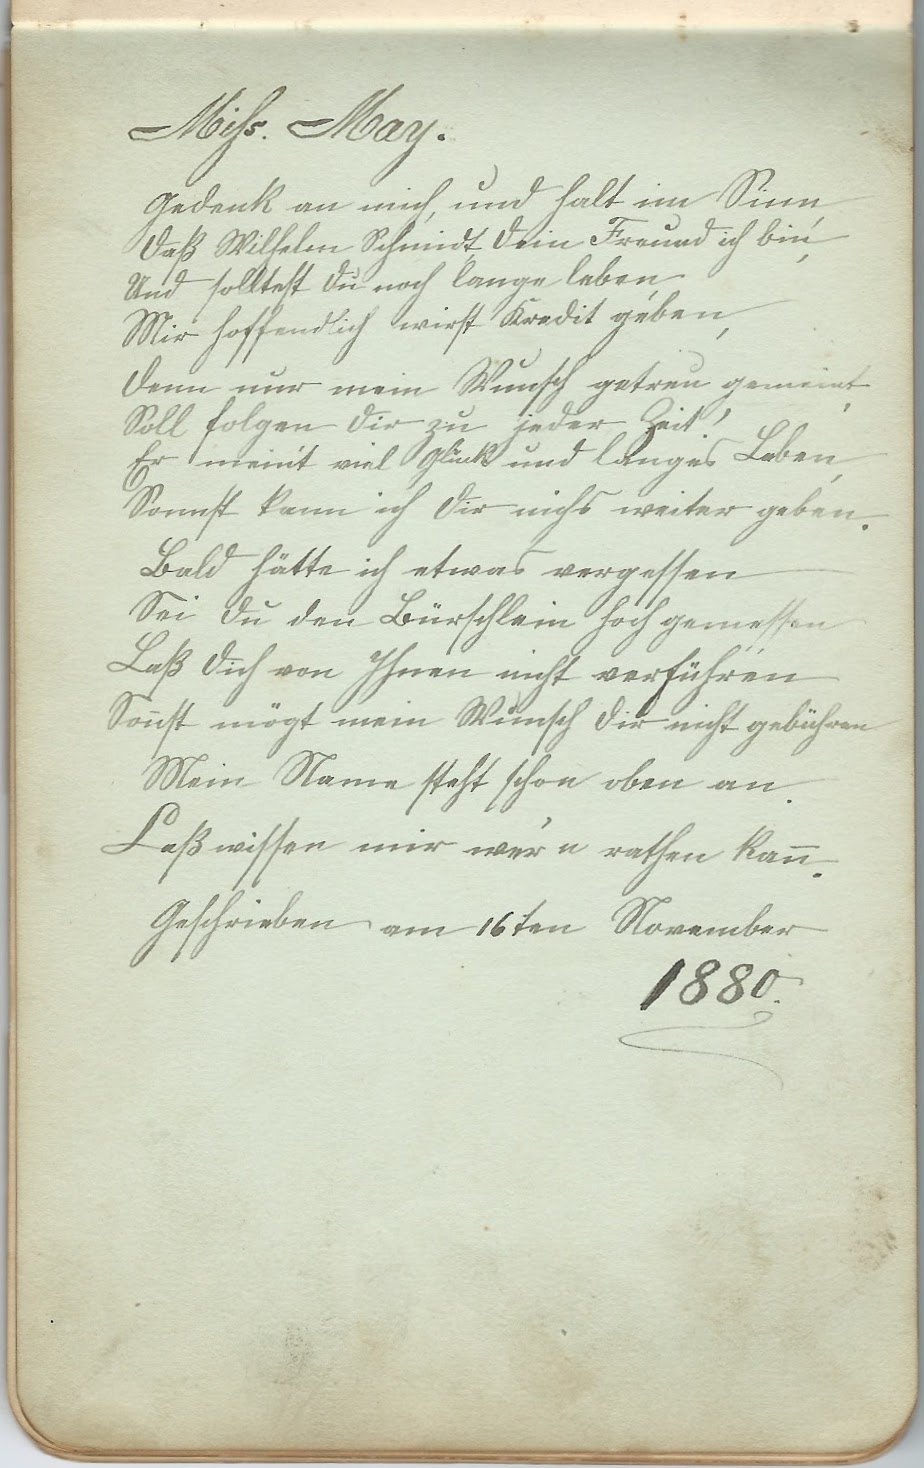 Miss. May.
Gedenk an mich, und halt im Sinn
daß Wilhelm Schmidt, Dein Freund ich bin,
Und solltest Du noch lange leben,
Mir hoffendlich wirst Kredit geben,
denn nur mein Wunsch getreu gemeint,
Soll folgen Dir zu jeder Zeit,
Er meint viel Glück und langes Leben,
Sonnst kann ich Dir nichs weiter geben.
Bald hätte ich etwas vergessen
Sei Du den Bürschlein hoch gemessen
Laß Dich von Ihnen nicht verführen
Sonst mögt mein Wunsch Dir nicht gebühren
Mein Name steht schon oben an.
Laß wissen mir wer'n rathen kann.
Geschrieben am 16ten November
1880.